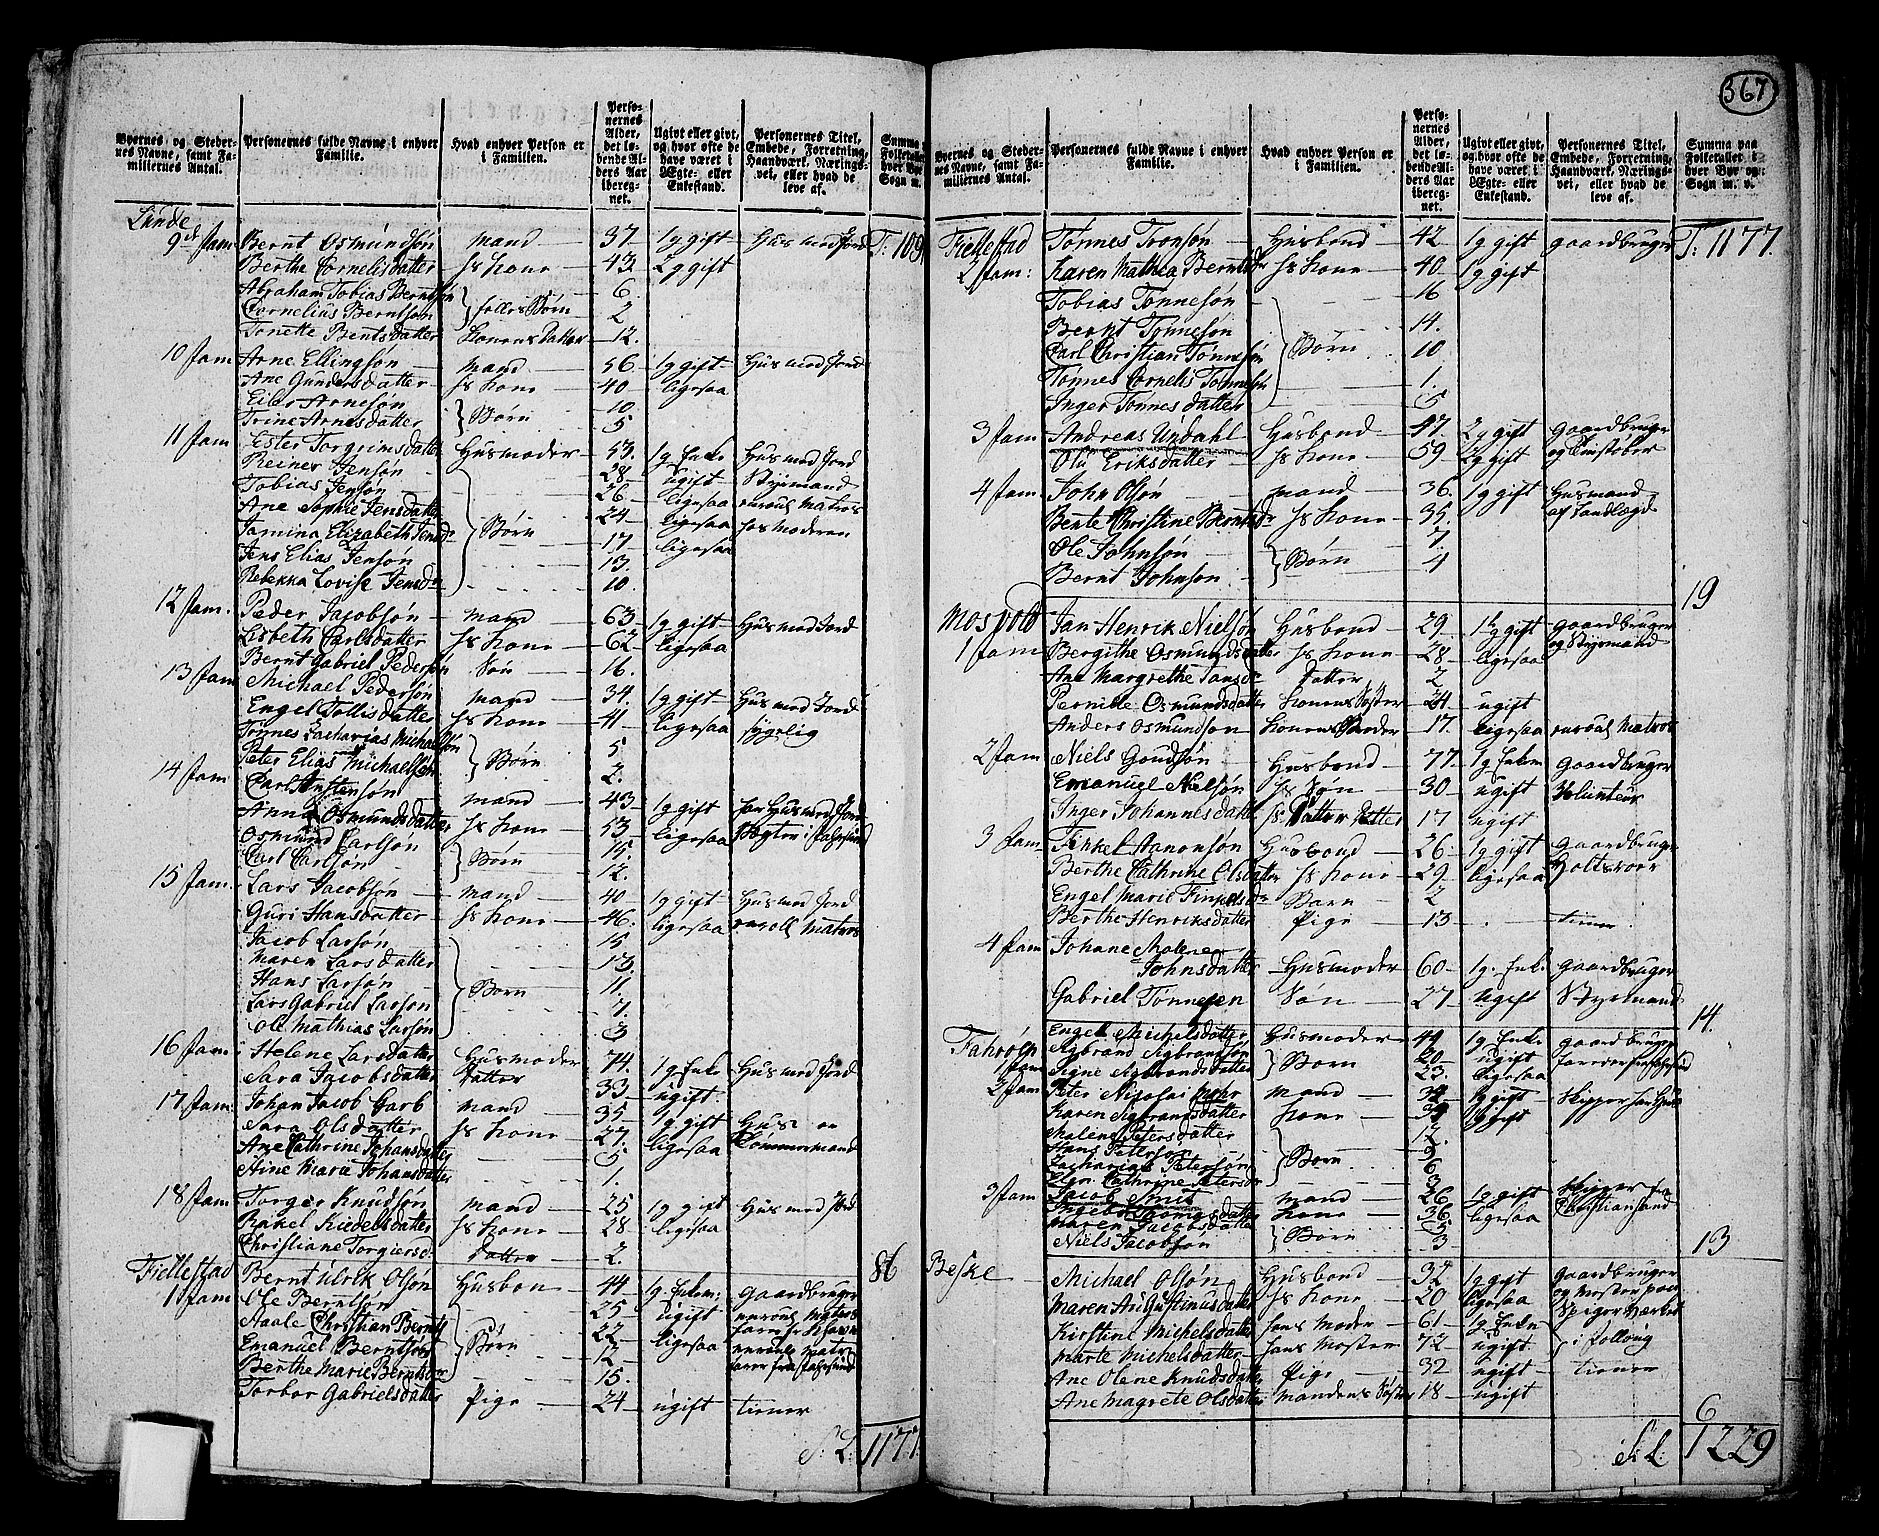 367
Byernes og Steder-
nes Navne, samt Fa-
miliernes Antal.
Personernes fulde Navne i enhver
Familie.
Hvad enhver Person er
i Familien.
Perso-
nernes
Alder,
det lø-
bende Al-
ders Aar
iberegn-
net.
Ugivt eller givt,
og hvor ofte de
have været i
Ægte- eller
Enkestand.
Personernes Titel,
Embede, Forretning,
Haandværk, Nærings-
vei, eller hvad de
leve af.
Summa
Folketallet
hver By
Sogn m.
Linde
9de fam Bernt Osmundsøn mand 37 1g gift Huus med Jord T: 109
Berthe Cornelisdatter hs kone 43 2g gift
Abraham Tobias Berntsøn 6
Cornelius Berntsøn fælles Børn 2
Tonette Bentsdatter konens Datter 12.
10 fam Arne Ellingsøn mand 56 1g gift Huus med Jord
Ane Gundersdatter hs kone 40 ligesaa
Elias Arnesøn Børn 10
Trine Arnesdatter 5
11 fam Ester Torgrimsdatter Husmoder 53. 1g Enke Huus med Jord
Reiner Jensøn 28 ugift Styrmand
Tobias Jensøn 26 ligesaa enroul Matros
Ane Sophie Jensdatter 24 ligesaa hos Moderen
Jamina Elizabeth Jensd Børn 17 ligesaa
Jens Elias Jensøn 13.
Rebekka Lovise Jensd 10.
12 fam. Peder Jacobsøn mand 63 1g gift Huus med Jord
Lisbeth Carlsdatter hs kone 62 ligesaa
Bernt Gabriel Pedersøn Søn 16.
13 fam Michael Pedersøn mand 34. 1g gift Huus med Jord
Engel Tollisdatter hs kone 41 ligesaa sygelig
Tønnes Zacharias Michaelsøn Børn 5
Peter Elias Michaelsøn 2.
14 fam Carl Anstensøn mand 43 1g gift har Huus med Jord
Anna Osmundsdatter hs kone 53 ligesaa
Osmund Carlsøn Børn 15.
Carl Carlsøn 12.
15 fam. Lars Jacobsøn mand 40 1g gift Huus med Jord
Guri Hansdatter hs kone 46. ligesaa enroll Matros
Jacob Larsøn 15
Maren Larsdatter 13.
Hans Larsøn Børn 11.
Lars Gabriel Larsøn 7
Ole Mathias Larsøn 3
16 fam Helene Larsdatter Husmoder 74. 1g Enke Huus med Jord
Sara Jacobsdatter Datter 33 ugift
17 fam. Johan Jacob Garb mand 35 1g gift Huus
Sara Olsdatter hs kone 27. ligesaa Tømmermand
Ane Cathrine Johansdatter 5
Aine Marie Johansdatter 1.
18 fam Torger Knudsøn mand 25 1g gift Huus med Jord
Rakel Riedelsdatter hs kone 28 ligesaa
Christiane Torgiersd Datter 2. 86
Fiellestad Bernt Ulrik Olsøn Husbon 44 1g. Enkem: Gaardbruger
1 fam Ole Berntsøn 25 ugift enroul Matros
Aale Christian Bernts 22 ligesaa
Emanuel Berntsøn Børn 12
Berthe Marie Berntsd 15.
Torbor Gabrielsdatter Pige 24 ugift tiener
S: L: 1177
Byernes og Steder-
nes Navne, samt Fa-
miliernes Antal.
Personernes fulde Navne i enhver
Familie.
Hvad enhver Person er
i Familien.
Perso-
nernes
Alder,
det lø-
bende Al-
ders Aar
iberegn-
net.
Ugivt eller givt,
og hvor ofte de
have været i
Ægte- eller
Enkestand.
Personernes Titel,
Embede, Forretning,
Haandværk, Nærings-
vei, eller hvad de
leve af.
Summa paa
Folketallet i
hver By og
Sogn m. v.
Fiellestad Tønnes Tronsøn Husbond 42 1g gift gaardbruger T: 1177.
2 fam: Karen Mathea Berntsd hs kone 40 1g gift
Tobias Tønnesøn 16
Bernt Tønnesøn 14.
Carl Christian Tønnesøn Børn 10
Tønnes Cornelis Tønnesøn 1.
Inger Tønnesdatter 5
3 fam Andreas Undahl Husbond 47. 2g gift gaardbruger
Olu Eriksdatter hs kone 59 2g gift
4 fam John Olsøn mand 36. 1g gift Husmand
Bente Christine Berntsd hs kone 35. af Landlægd
Ole Johnsøn Børn 7.
Bernt Johnsøn 4
19
Mospold Jan Henrik Nielsøn Husbond 29 1g gift gaardbruger
1 fam Bergithe Osmundsdatter hs kone 28 ligesaa og Styrmand
Ane Margrethe Jansd Datter 2
Pernille Osmundsdatter konens Søster 24 ugift
Anders Osmundsøn konens Broder 17. ligesaa enroul Matros
2 fam Niels Goudsøn Husbond 77 1g Enkem gaardbruger
Emanuel Nielsøn hs Søn 30 ugift Volunteur
Inger Johannesdatter hs Datter Datter 17 ugift
3 fam Finkel Aanonsøn Husbond 26 1g gift gaardbruger
Berthe Cathrine Olsdatter hs kone 29 ligesaa
Engel Marie Finkelsd Barn 2
Berthe Henriksdatter Pige 13 tiener
4 fam Johane Malene
Johnsdatter Husmoder 60 1g. Enke gaardbruger
Gabriel Tønnesen Søn 27 ugift Styrmand
14.
Fahrøen Engel Michelsdatter Husmoder 44 1g Enke gaardbruger
1 fam Sigbrand Sigbrandsøn Børn 20 ugift
Signe Sigbrandsdatter 23. ligesaa
2 fam Peter Nicolai Mohr mand 34 1g gift Skipper har Huus
Karen Sigbrandsdatter kone 39 1g gift
Malene Petersdatter 12.
Hans Petersøn 9
Zacharias Petersøn Børn 6
Elen Cathrine Petersd 3
3 fam Jacob Smit mand 26 1g gift Skipper fra
kone 36 ligesaa Christiansand
Maren Jacobsdatter Børn 5
Niels Jacobsøn 3
13
Beske Michael Olsøn Husbond 32 1g gift gaardbruger
Maren Augustinusdatter hs kone 20 ligesaa og Mester paa
Kirstine Michelsdatter hans Moder 61 1g Enke Spiger Værket
Marte Michelsdatter hans Moster 72 ugift
Ane Olene Knudsdatter Pige 32 ugift tiener
Ane Magrete Olsdatter Mandens Søster 18 ugift
6
S: L: 1229